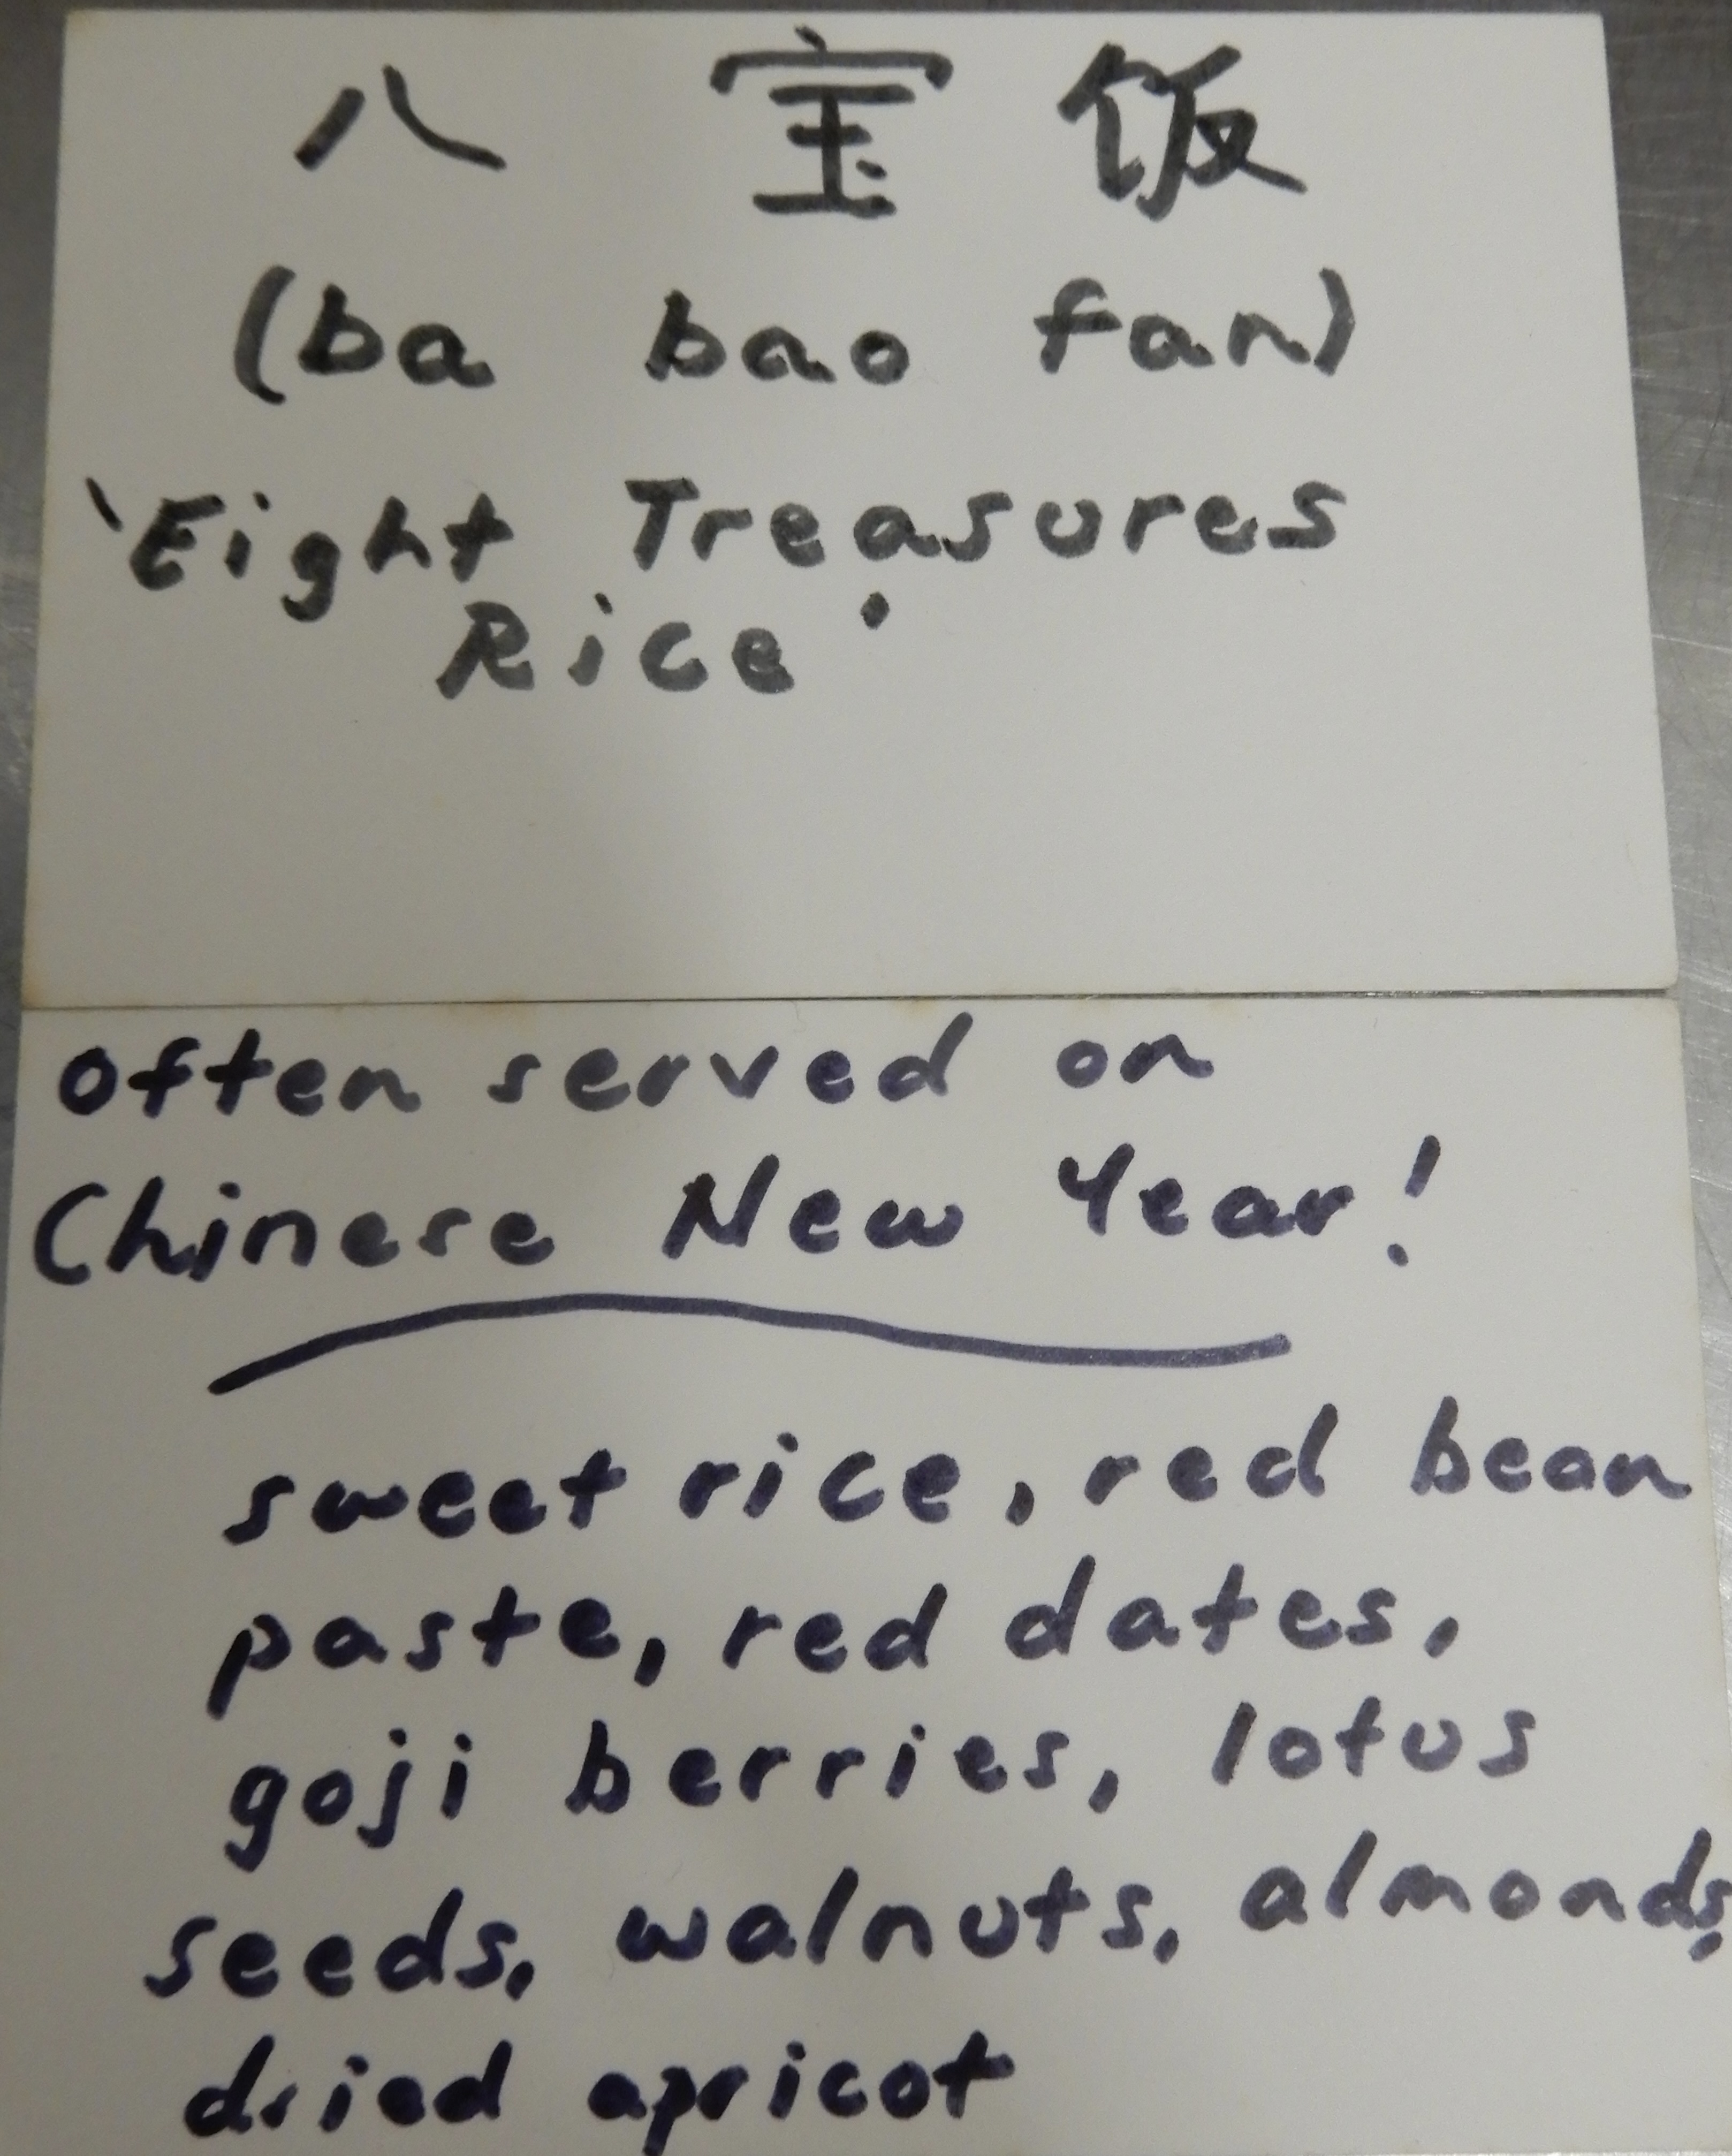 八 宝 饭
(ba bao fan)
'Eight Treasures
Rice'
often served on
Chinese New Year!
sweet rice, red bean
paste, red dates,
goji berries, lotus
seeds, walnuts, almonds,
dried apricot